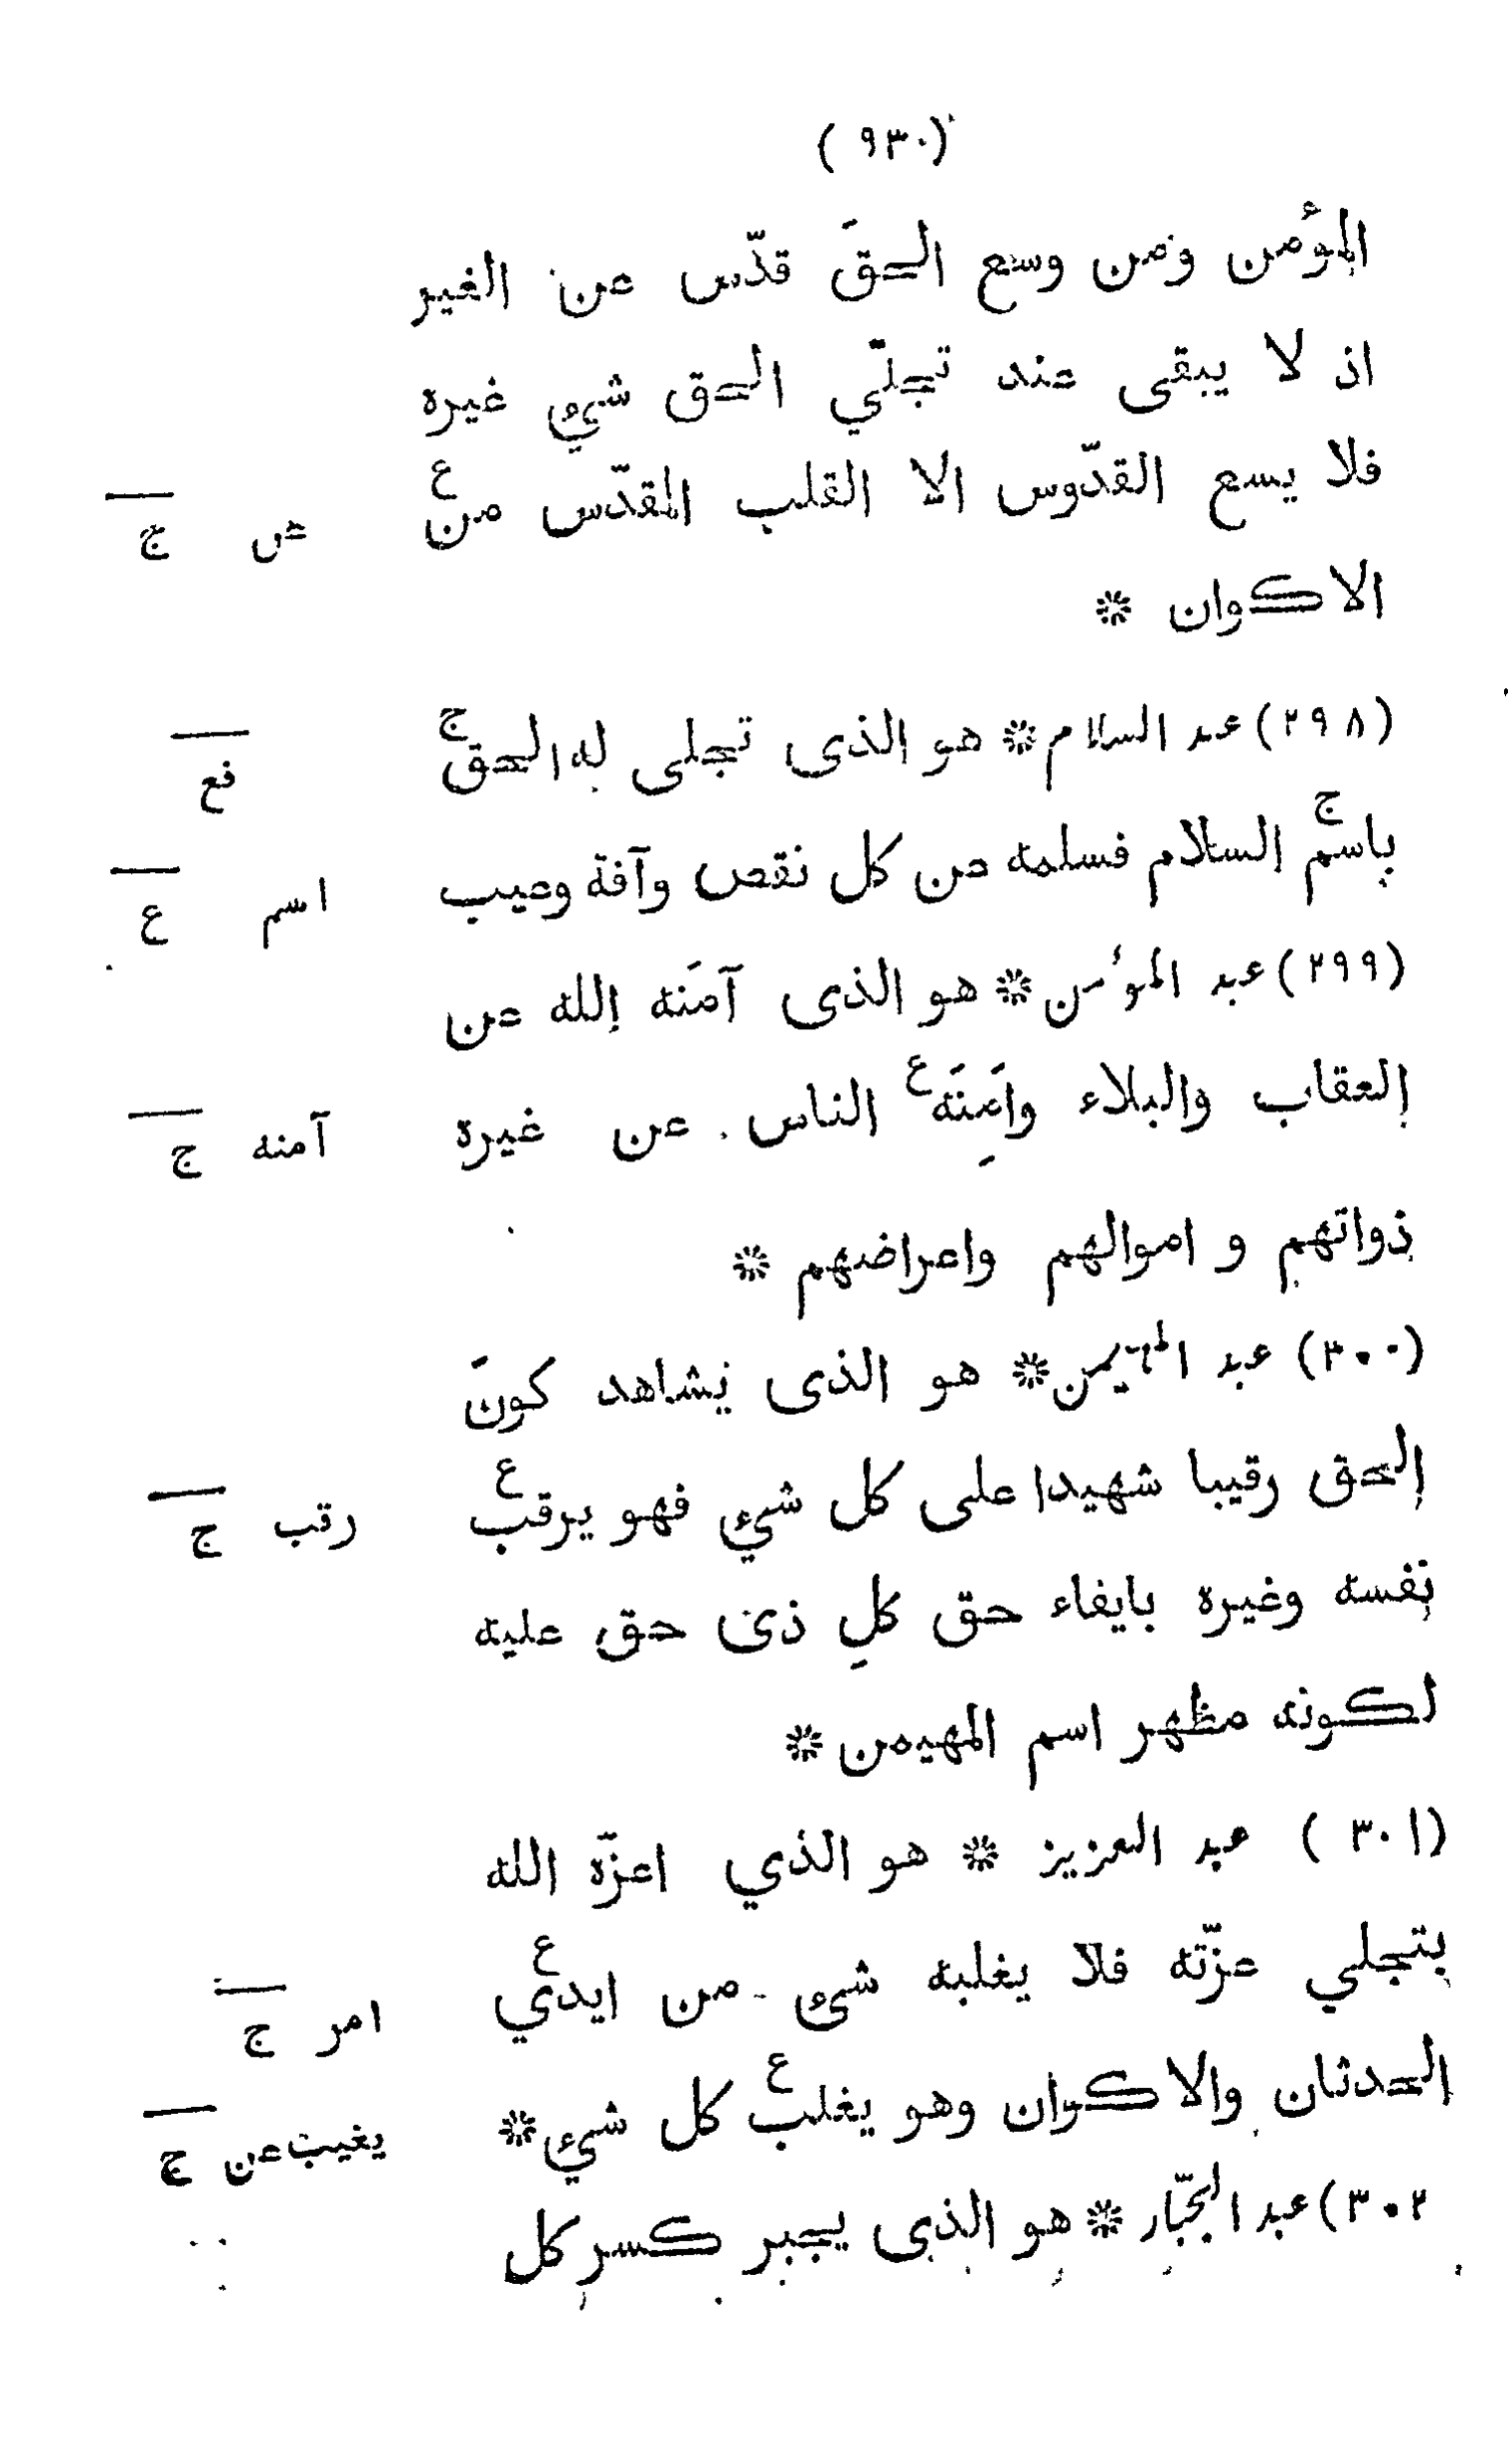 (٩٣٠)
المؤمن ومن وسع الحقَ قدّس عن الغير
اذ لا يبقى عند تجلّي الحق شيء غيره
فلا يسع القدّوس الا القلب المقدّس من ع عن ج
الاكوان *
(٢٩٨) عبد السلام * هو الذى تجلى له الحق ج فع
باسم ج السلام فسلمه من كل نقص وآفة وعيب اسم ع
(٢٩٩) عبد المؤمن * هو الذى آمَنه الله عن
العقاب والبلاء وامِنَه ع الناس عن غيره آمنه ج
ذواتهم و اموالهم واعراضهم *
(٣٠٠) عبد المهيمن * هو الذى يشاهد كونَ
الحق رقيبا شهيدا على كل شيء فهو يرقب ع رقب ج
نفسه وغيره بايفاء حق كلِ ذى حق عليه
لكونه مظهر اسم المهيمن *
(٣٠١) عبد العزيز * هو الذي اعزّه الله
بتجلي عزّته فلا يغلبه شيء من ايدي ع امر ج
الحدثان والاكوان وهو يغلب ع كل شيء * يغيب عن ج
٣٠٢) عبد الجبّار * هو الذى يجبر كسر كل